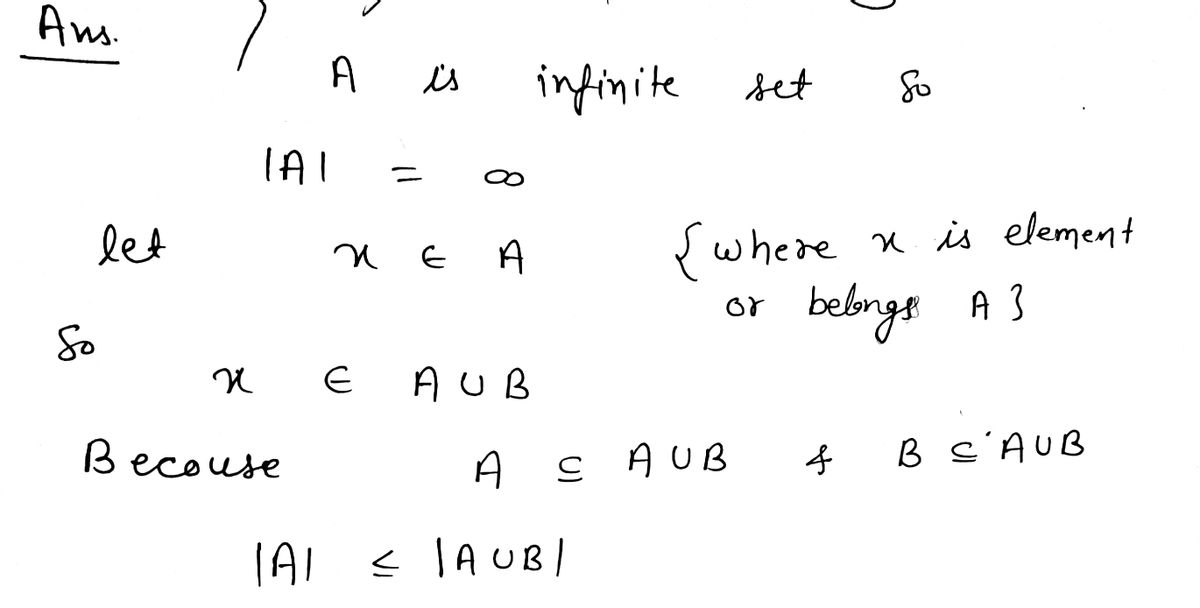 Ans.
A is infinite set So
|A| = ∞
let x ∈ A { where x is element
or belongs A }
So
x ∈ A ∪ B
Becouse A ⊆ A ∪ B & B ⊆ A ∪ B
|A| ≤ |A ∪ B|